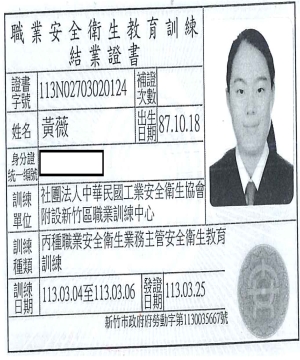 職業安全衛生教育訓練
結業證書
證書字號 113N02703020124 補證次數
姓名 黃薇 出生日期 87.10.18
身分證統一編號
訓練單位 社團法人中華民國工業安全衛生協會
附設新竹區職業訓練中心
訓練種類 丙種職業安全衛生業務主管安全衛生教育
訓練
訓練日期 113.03.04至113.03.06 發證日期 113.03.25
新竹市政府府勞動字第1130035667號